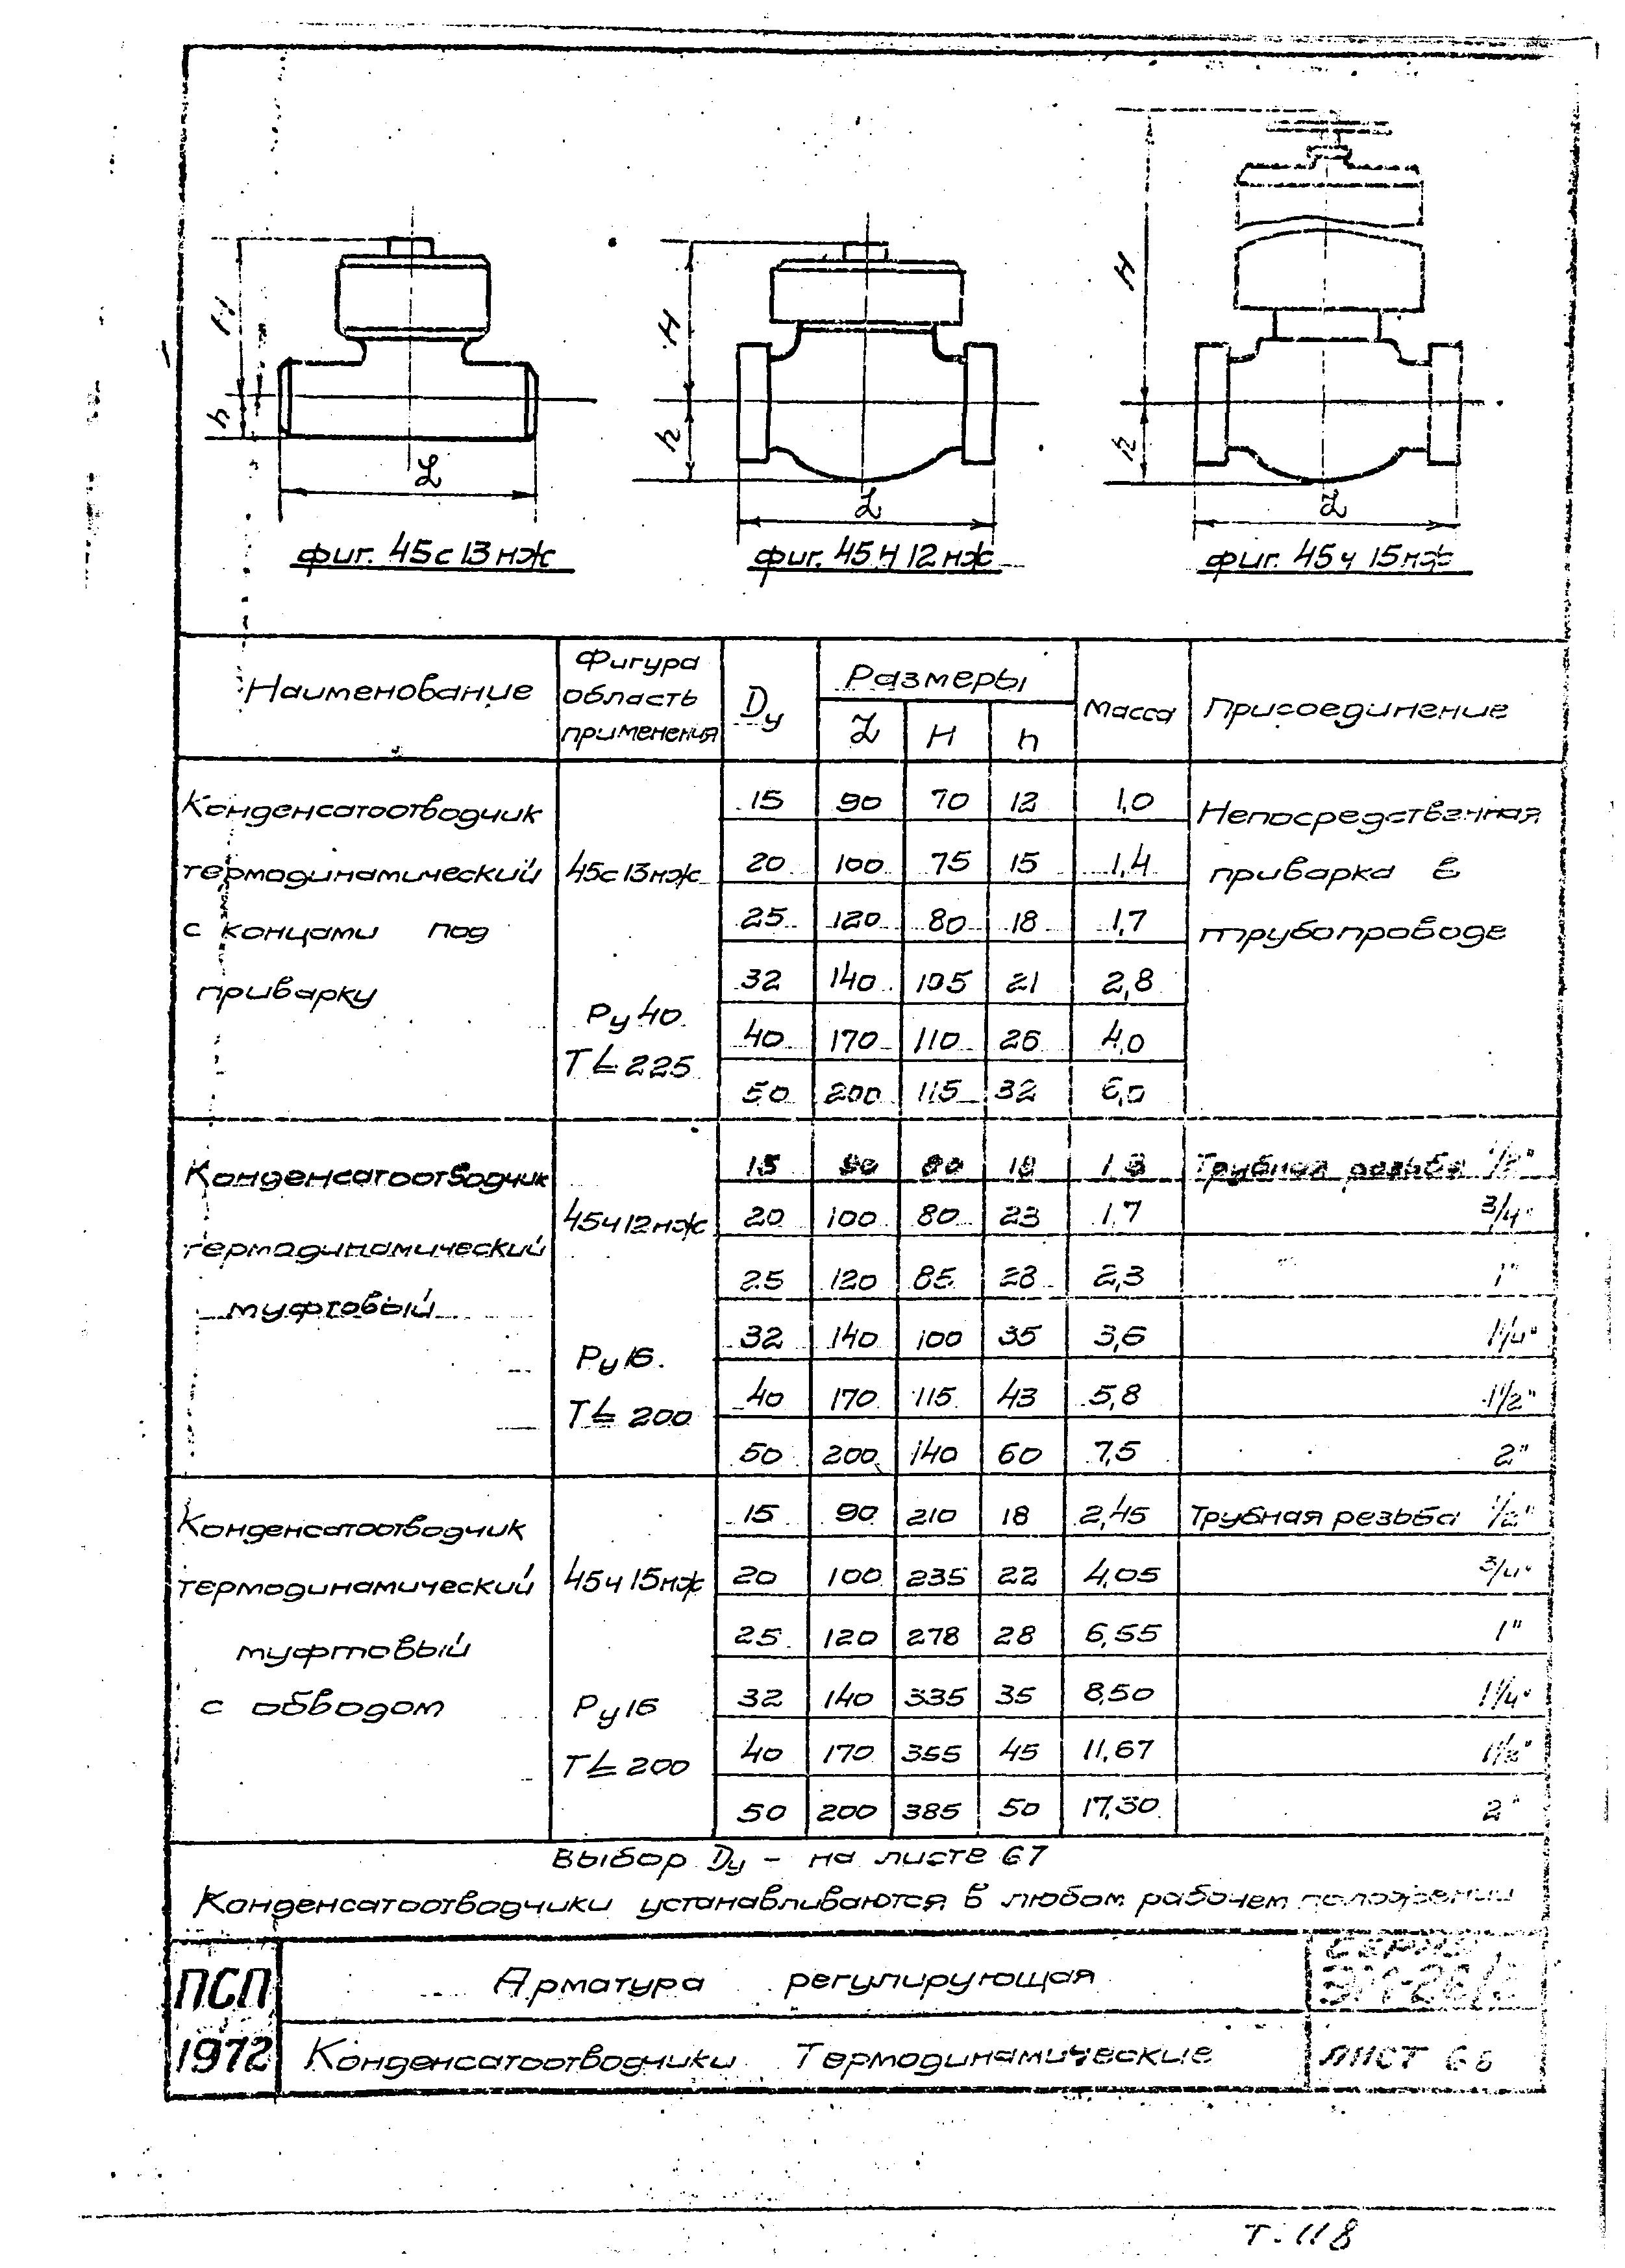 H
h
L
фиг. 45с13нж
H
h
L
фиг. 45ч12нж
H
h
L
фиг. 45ч 15нж
Наименование
Фигура
область
применения
Dу
Размеры
L H h
Масса
Присоединение
Конденсатоотводчик
термодинамический
с концами под
приварку
45с13нж
Ру40
Т ≤ 225
15 90 70 12 1,0
20 100 75 15 1,4
25 120 80 18 1,7
32 140 105 21 2,8
40 170 110 26 4,0
50 200 115 32 6,0
Непосредственная
приварка в
трубопроводе
Конденсатоотводчик
термодинамический
муфтовый
45ч12нж
Ру16.
Т ≤ 200
15 90 80 18 1,3 Трубная резьба 1/2"
20 100 80 23 1,7 3/4"
25 120 85 28 2,3 1"
32 140 100 35 3,6 1 1/4"
40 170 115 43 5,8 1 1/2"
50 200 140 60 7,5 2"
Конденсатоотводчик
термодинамический
муфтовый
с обводом
45ч15нж
Ру16
Т ≤ 200
15 90 210 18 2,45 Трубная резьба 1/2"
20 100 235 22 4,05 3/4"
25 120 278 28 6,55 1"
32 140 335 35 8,50 1 1/4"
40 170 355 45 11,67 1 1/2"
50 200 385 50 17,30 2"
Выбор Dу - на листе 67
Конденсатоотводчики устанавливаются в любом рабочем положении
ПСП
1972
Арматура регулирующая
Серия
Конденсатоотводчики Термодинамические
Лист 66
Т. 118